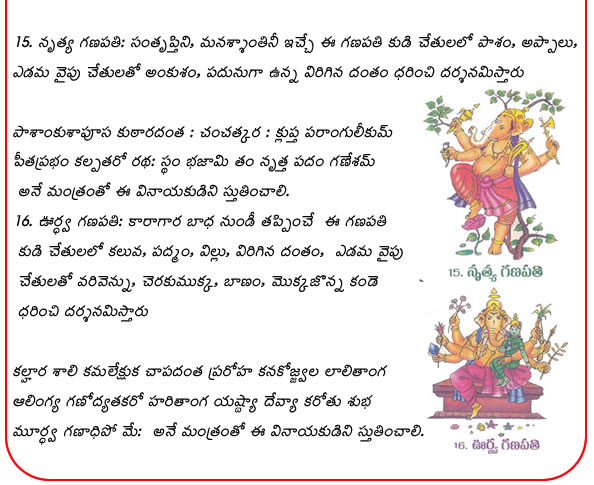 15. నృత్య గణపతి: సంతృప్తిని, మనశ్శాంతినీ ఇచ్చే ఈ గణపతి కుడి చేతులలో పాశం, అప్పాలు,
ఎడమ వైపు చేతులతో అంకుశం, పదునుగా ఉన్న విరిగిన దంతం ధరించి దర్శనమిస్తారు
పాశాంకుశాపూస కుఠారదంత : చంచత్కర : క్లుప్త పరాంగులీకుమ్
పీతప్రభం కల్పతరో రథ: స్థం భజామి తం నృత్త పదం గణేశమ్
అనే మంత్రంతో ఈ వినాయకుడిని స్తుతించాలి.
16. ఊర్ధ్వ గణపతి: కారాగార బాధ నుండీ తప్పించే ఈ గణపతి
కుడి చేతులలో కలువ, పద్మం, విల్లు, విరిగిన దంతం, ఎడమ వైపు
చేతులతో వరివెన్ను, చెరకుముక్క, బాణం, మొక్కజొన్న కండె
ధరించి దర్శనమిస్తారు
కల్హార శాలి కమలేక్షుక చాపదంత ప్రరోహ కనకోజ్వల లాలితాంగ
ఆలింగ్య గణోద్యతకరో హరితాంగ యష్ట్యా దేవ్యా కరోతు శుభ
మూర్ధ్వ గణాధిపో మే: అనే మంత్రంతో ఈ వినాయకుడిని స్తుతించాలి.
15. నృత్య గణపతి
16. ఊర్ధ్వ గణపతి